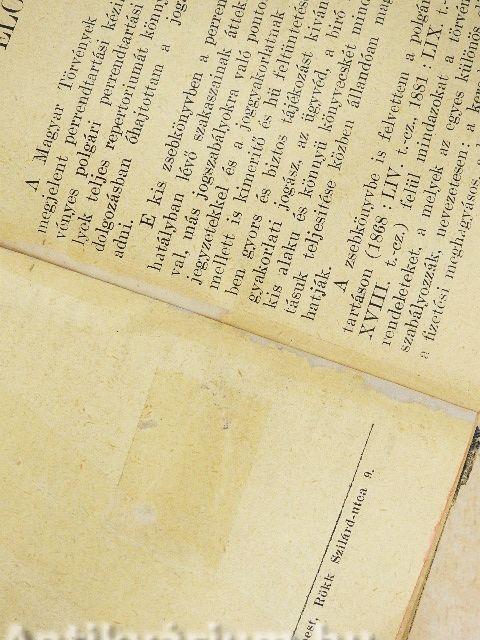 ELŐ
A Magyar Törvények
megjelent perrendtartási kézi
vényes polgári perrendtartási
lyék teljes repertoriumát köny
dolgozásban óhajtottam a jog
adni.
E kis zsebkönyvben a perren
hatályban lévő szakaszainak áttek
val, más jogszabályokra való ponto
jegyzetekkel és a joggyakorlatnak
mellett is kimerítő és hű feltüntetés
ben gyors és biztos tájékozást kíván
gyakorlati jogász, az ügyvéd, a bíró
kis alaku és könnyü könyvecskét mind
tásuk teljesítése közben állandóan mag
hatják.
A zsebkönyvbe is felvettem a polgár
tartáson (1868 : LIV . t.-cz., 1881 : LIX. t.-
XVIII. t.-cz.) felül mindazokat a törvén
rendeleteket, a melyek az egyes különös
szabályozzák, nevezetesen: a
a fizetési meghagyásos
pest, Rökk Szilárd-utca 9.
Antikvárium.hu